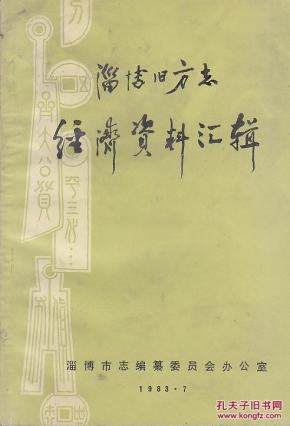 淄博旧方志
经济資料汇辑
淄博市志编纂委员会办公室
1983·7
孔夫子旧书网